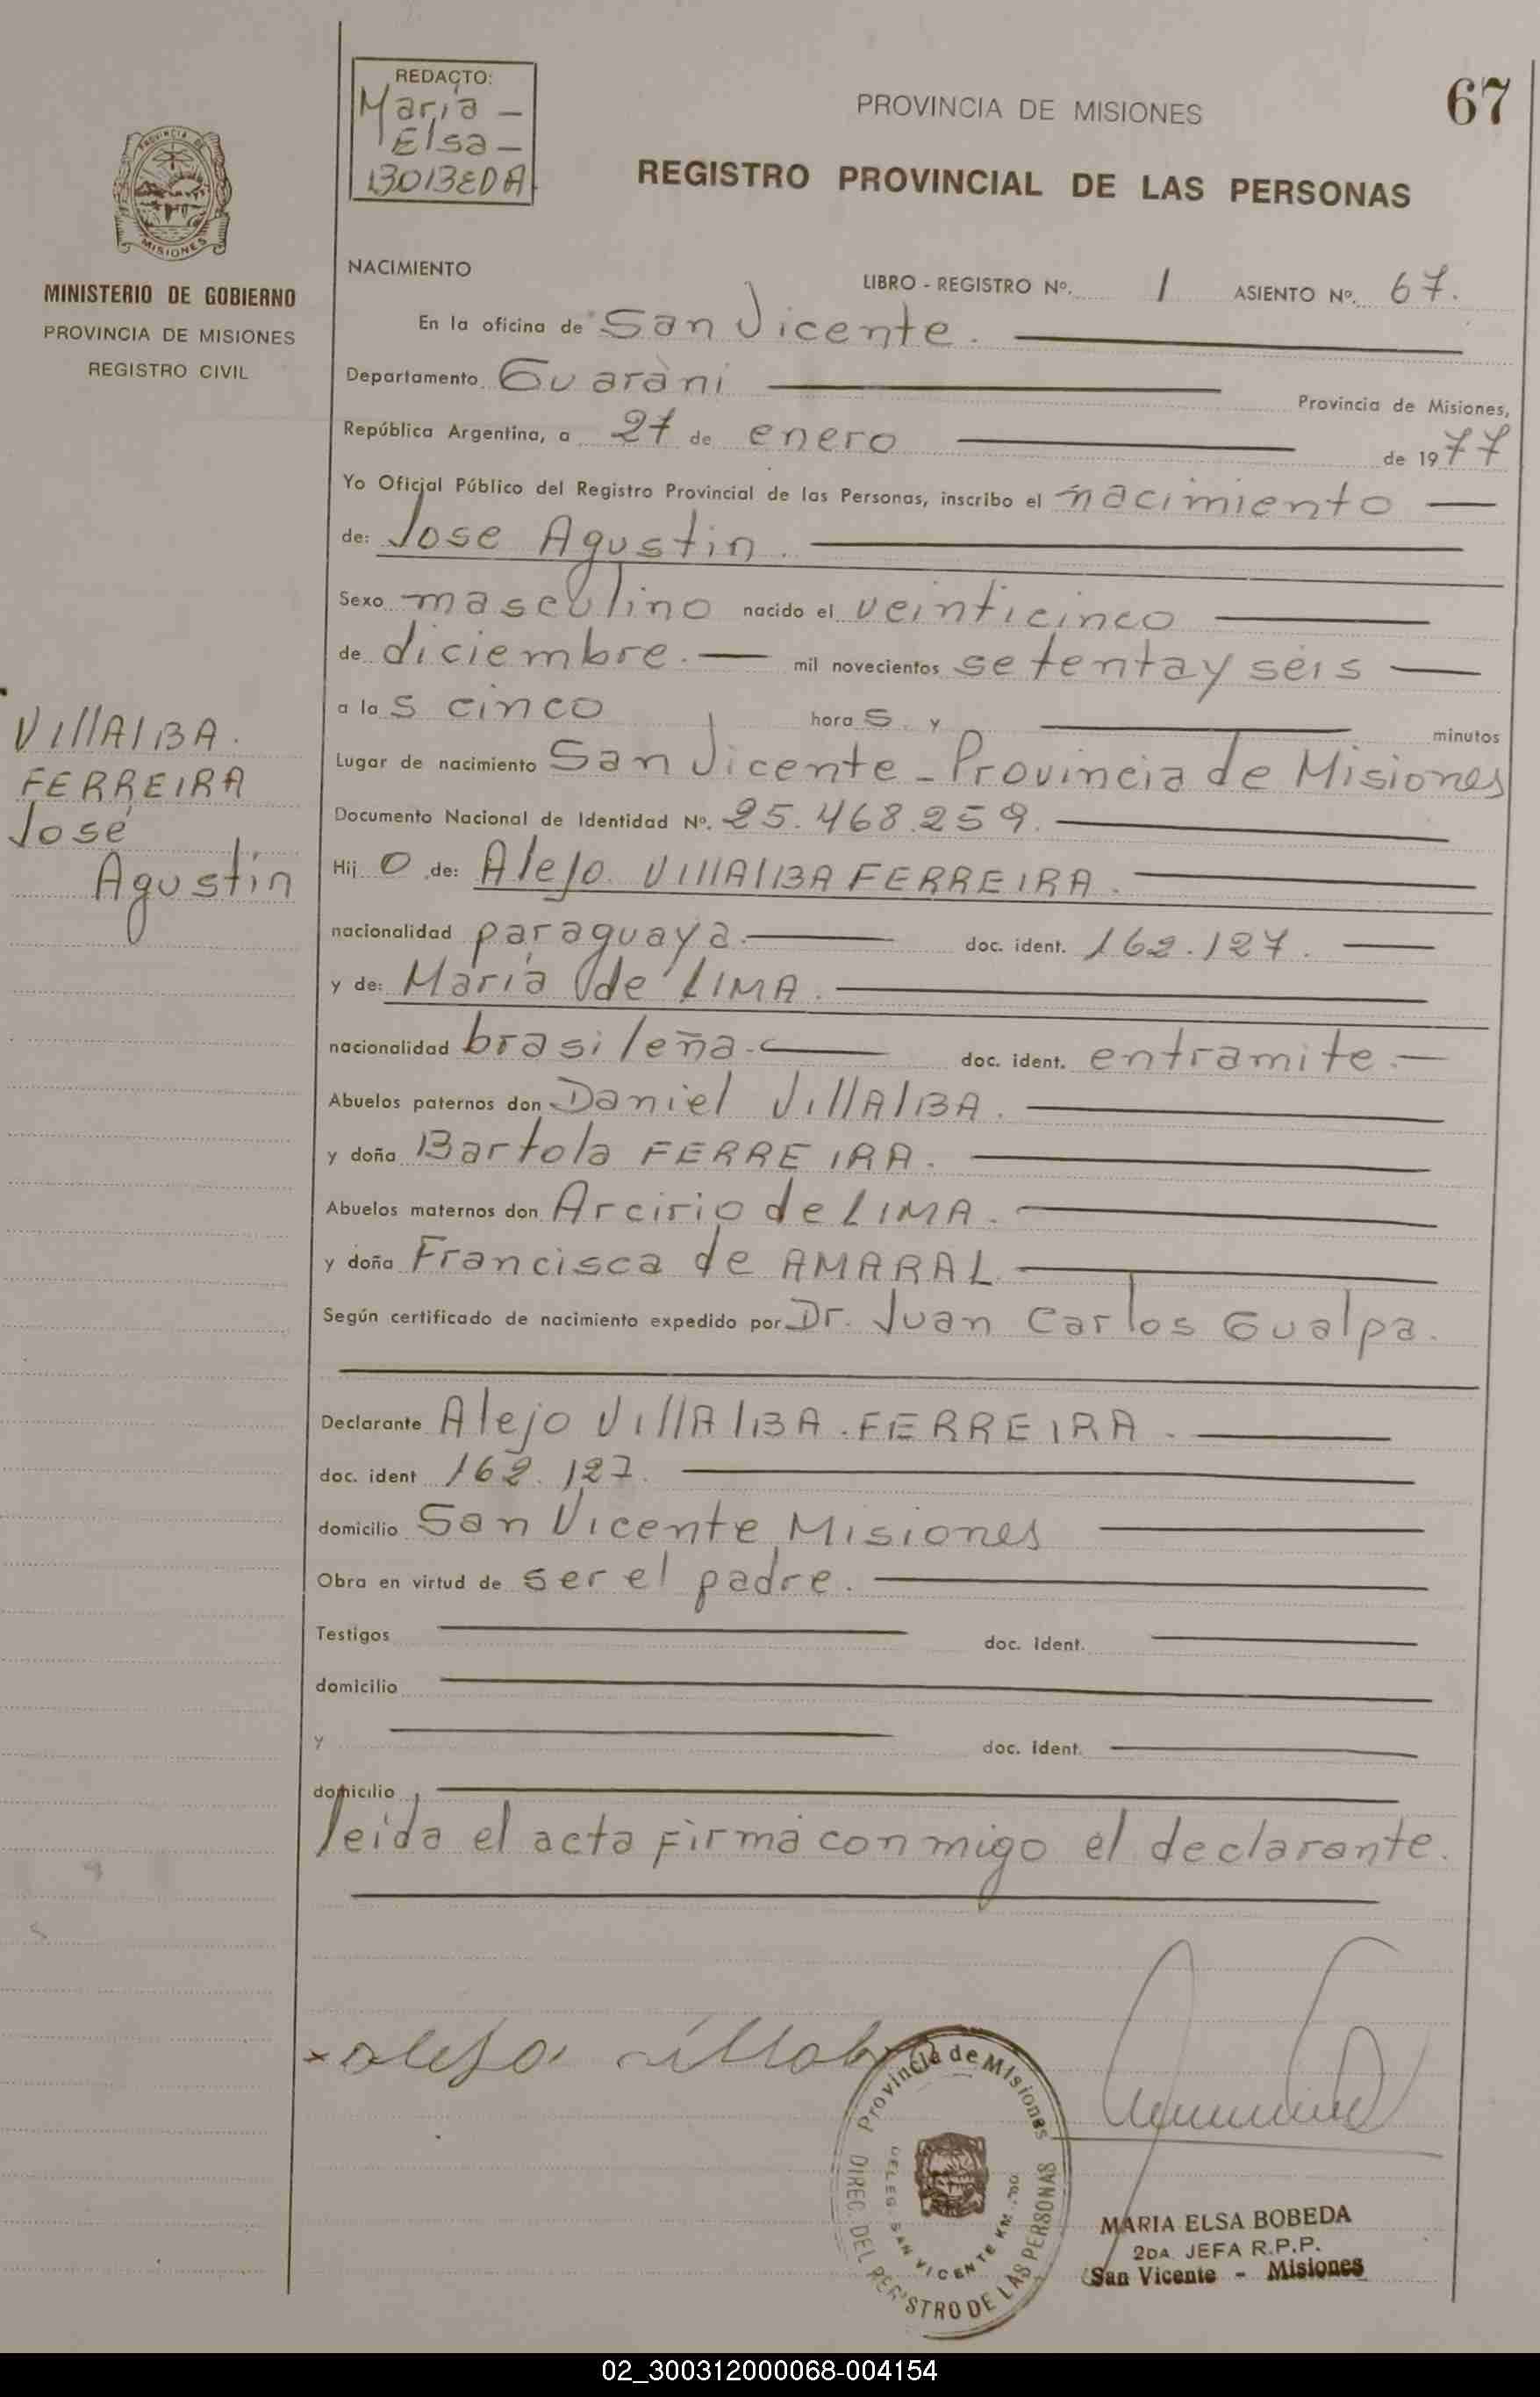 REDACTO:
Maria -
Elsa -
BOBEDA
PROVINCIA DE MISIONES
67
REGISTRO PROVINCIAL DE LAS PERSONAS
PROVINCIA DE
MISIONES
MINISTERIO DE GOBIERNO
PROVINCIA DE MISIONES
REGISTRO CIVIL
NACIMIENTO LIBRO - REGISTRO Nº. 1 ASIENTO Nº. 67.
En la oficina de San Vicente.
Departamento Guaràni Provincia de Misiones,
República Argentina, a 27 de enero de 1977
Yo Oficial Público del Registro Provincial de las Personas, inscribo el nacimiento
de: Jose Agustin.
Sexo masculino nacido el veinticinco
de diciembre. mil novecientos setenta y séis
a las cinco horas. y minutos
Lugar de nacimiento San Vicente - Provincia de Misiones
Documento Nacional de Identidad Nº. 25.468.259.
Hijo de: Alejo. VIllAlBA FERREIRA.
nacionalidad paraguaya. doc. ident. 162.127.
y de: Maria de LIMA.
nacionalidad brasileña. doc. ident. entramite.
Abuelos paternos don Daniel VillAlBA.
y doña Bartola FERREIRA.
Abuelos maternos don Arcirio de LIMA.
y doña Francisca de AMARAL
Según certificado de nacimiento expedido por Dr. Juan Carlos Gualpa.
Declarante Alejo VIllAlBA. FERREIRA.
doc. ident 162.127.
domicilio San Vicente Misiones
Obra en virtud de ser el padre.
Testigos doc. ident.
domicilio
y doc. ident.
domicilio
leida el acta firma conmigo el declarante.
VIllAlBA.
FERREIRA
José
Agustin
x alejo villalb
Provincia de Misiones
DIREC. DEL REGISTRO DE LAS PERSONAS
DELEG. SAN VICENTE KM.
MARIA ELSA BOBEDA
2DA JEFA R.P.P.
San Vicente - Misiones
02_300312000068-004154